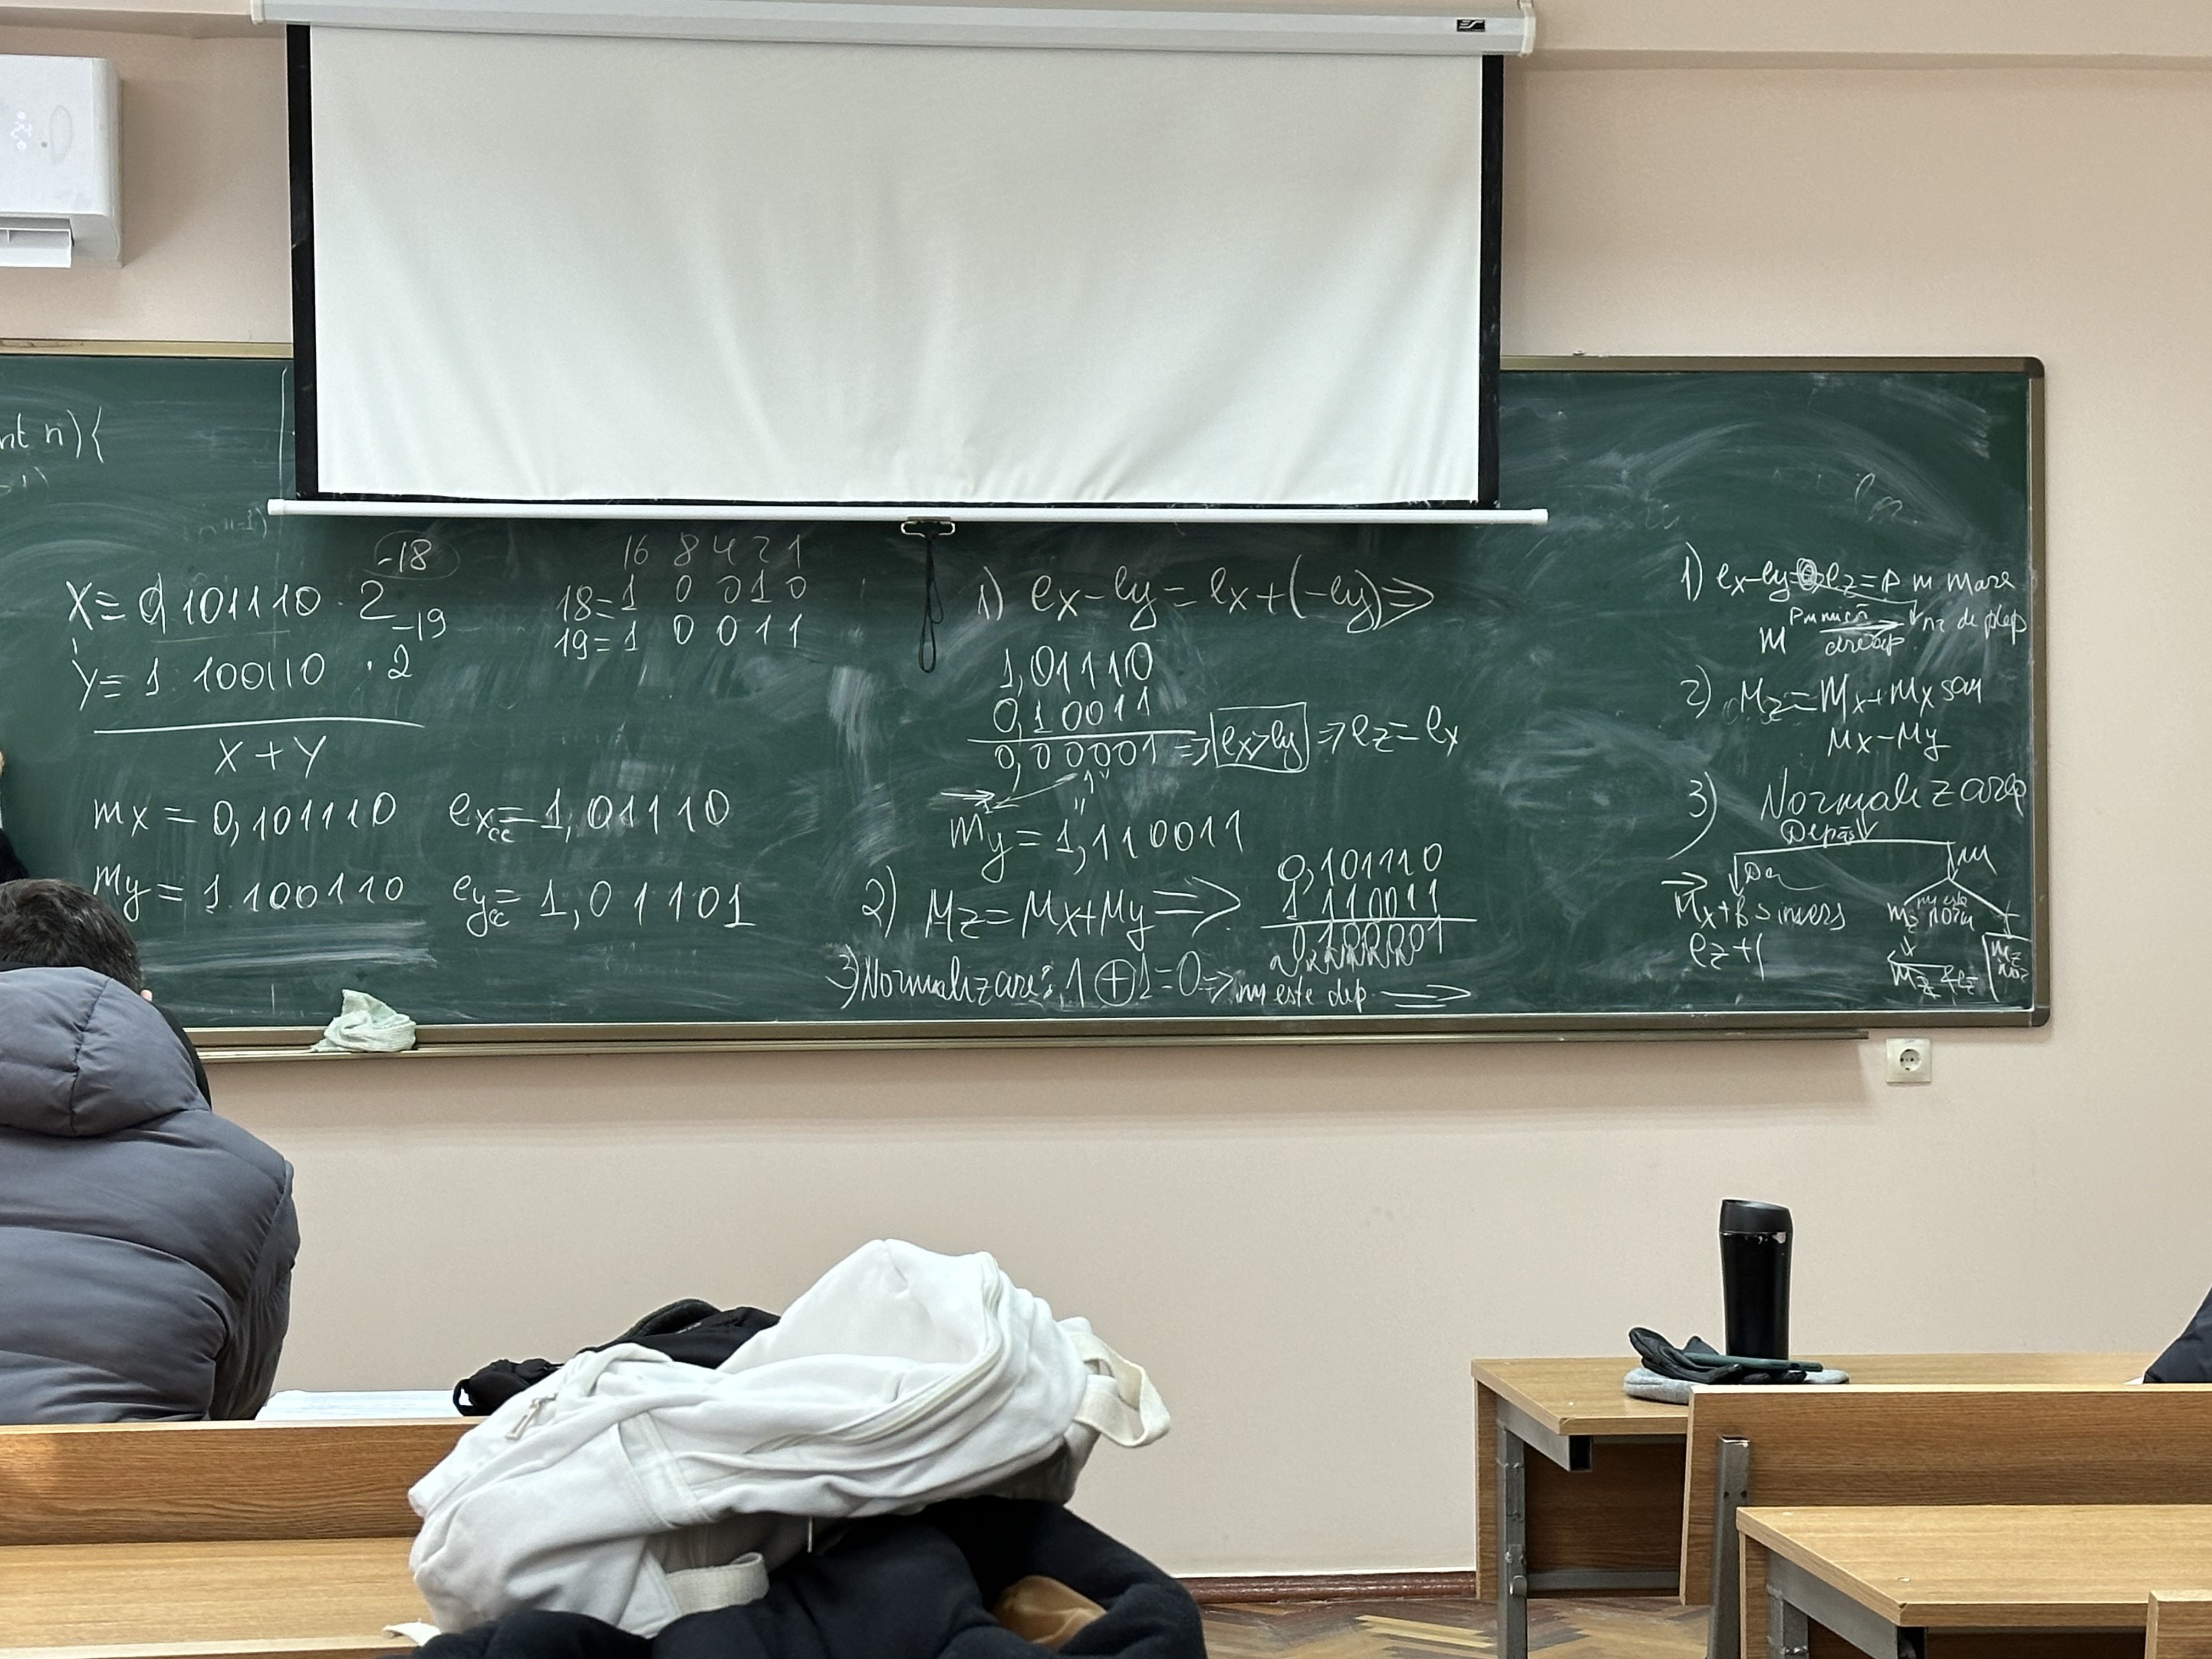 nt n){
-18
X = 0,101110 · 2
-19
Y = 1.100110 · 2
X + Y
mx = 0,101110 excc = 1,01110
my = 1.100110 eycc = 1,01101
16 8 4 2 1
18 = 1 0 0 1 0
19 = 1 0 0 1 1
1) ex - ey = ex + (-ey) =>
1,01110
0,10011
0,00001 => ex>ey => ez = ex
"1"
my = 1,110011
2) Mz = Mx + My =>
0,101110
1,110011
0,100001
3) Normalizare: 1 ⊕ 1 = 0 => nu este dep. =>
1) ex-ey= ez = P m mare
M P m mică nr de depl
dreap
2) Mz = Mx + Mx sau
Mx - My
3) Normalizare
Depăș
Da nu
Mx + b s invers
ez + 1
nu este
mz norm
mz